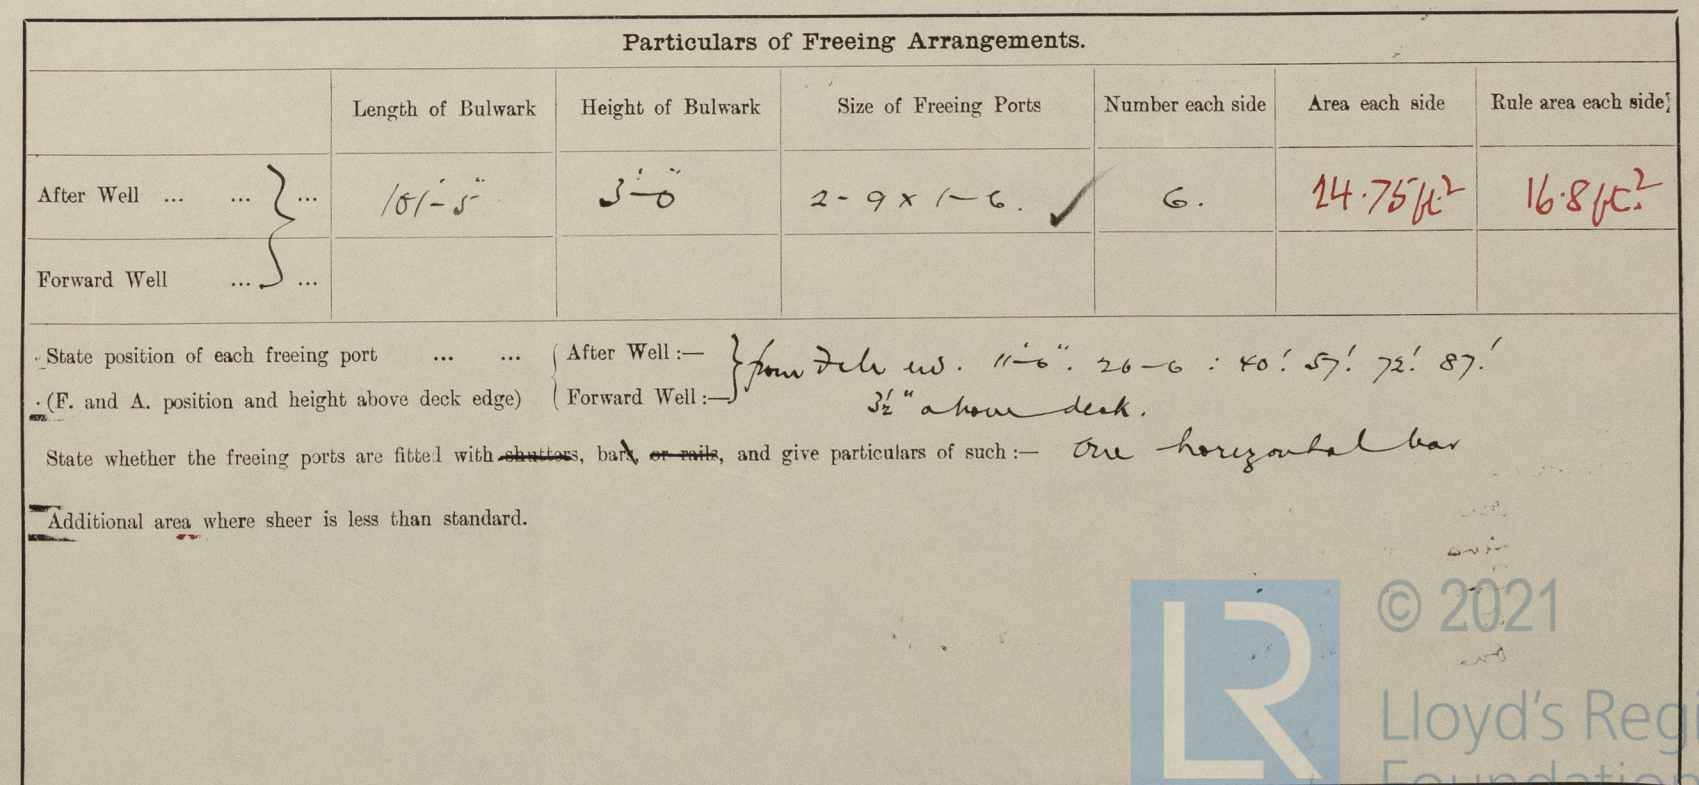 Particulars of Freeing Arrangements.
Length of Bulwark Height of Bulwark Size of Freeing Ports Number each side Area each side Rule area each side
After Well ... ... } ... 101'-5" 3'-0" 2-9 x 1-6. ✓ 6. 24.75 ft.² 16.8 ft.²
Forward Well ... ...
State position of each freeing port ... ... After Well :— } from end. 11'-6". 26-6 : 40' 57' 72' 87'
(F. and A. position and height above deck edge) Forward Well :— 3½" above deck.
State whether the freeing ports are fitted with shutters, bars, or rails, and give particulars of such :— One horizontal bar
Additional area where sheer is less than standard.
LR
© 2021
Lloyd's Regi
Foundation